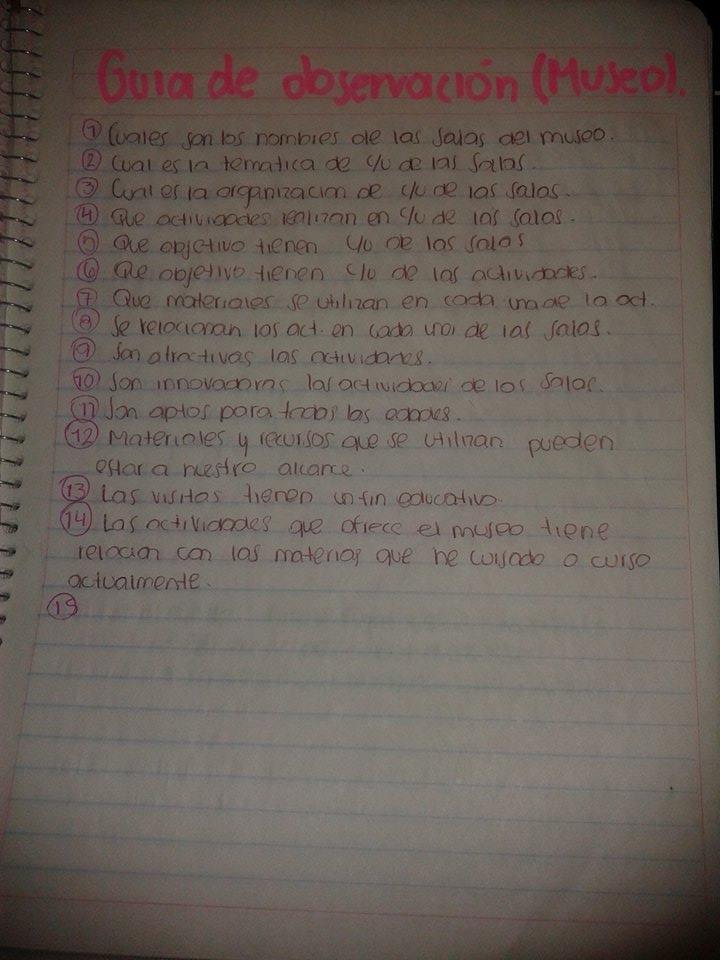 Guia de observación (Museo).
① Cuales son los nombres de las salas del museo.
② Cual es la tematica de c/u de las salas.
③ Cual es la organizacion de c/u de las salas.
④ Que actividades realizan en c/u de las salas.
⑤ Que objetivo tienen c/u de las salas
⑥ Que objetivo tienen c/u de las actividades.
⑦ Que materiales se utilizan en cada una de la act.
⑧ Se relacionan las act. en cada una de las salas.
⑨ Son atractivas las actividades.
⑩ Son innovadoras las actividades de las salas.
⑪ Son aptos para todas las edades.
⑫ Materiales y recursos que se utilizan pueden
estar a nuestro alcance.
⑬ Las visitas tienen un fin educativo.
⑭ Las actividades que ofrece el museo tiene
relacion con las materias que he cursado o curso
actualmente.
⑮